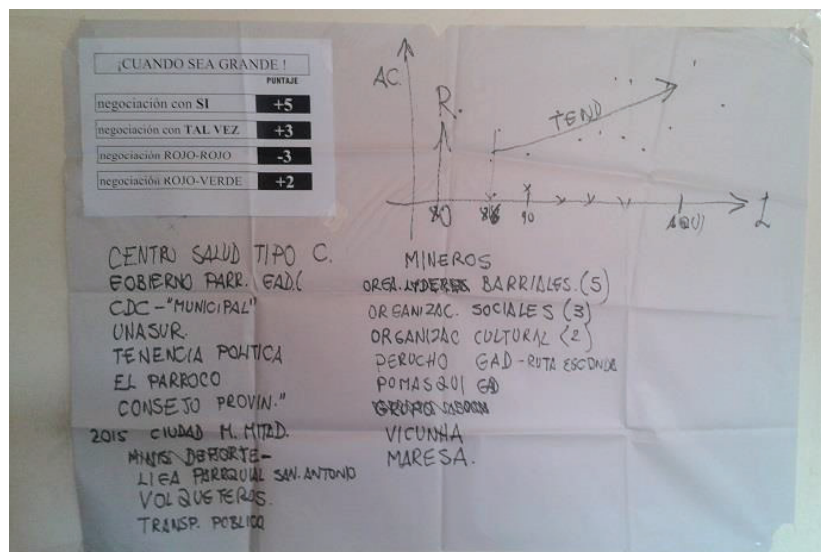 ¡CUANDO SEA GRANDE !
PUNTAJE
negociación con SI +5
negociación con TAL VEZ +3
negociación ROJO-ROJO -3
negociación ROJO-VERDE +2
AC.
R.
TEND
80
90
CENTRO SALUD TIPO C.
GOBIERNO PARR. GAD(
CDC-"MUNICIPAL"
UNASUR.
TENENCIA POLITICA
EL PARROCO
CONSEJO PROVIN."
2015 CIUDAD M. MITAD.
DEPORTE-
LIGA PARROQUIAL SAN. ANTONIO
VOLQUETEROS.
TRANSP. PUBLICO
MINEROS
ORGA. BARRIALES. (5)
ORGANIZAC. SOCIALES (3)
ORGANIZAC CULTURAL (2)
PERUCHO GAD-RUTA ESCONDIDA
POMASQUI GAD
VICUNHA
MARESA.